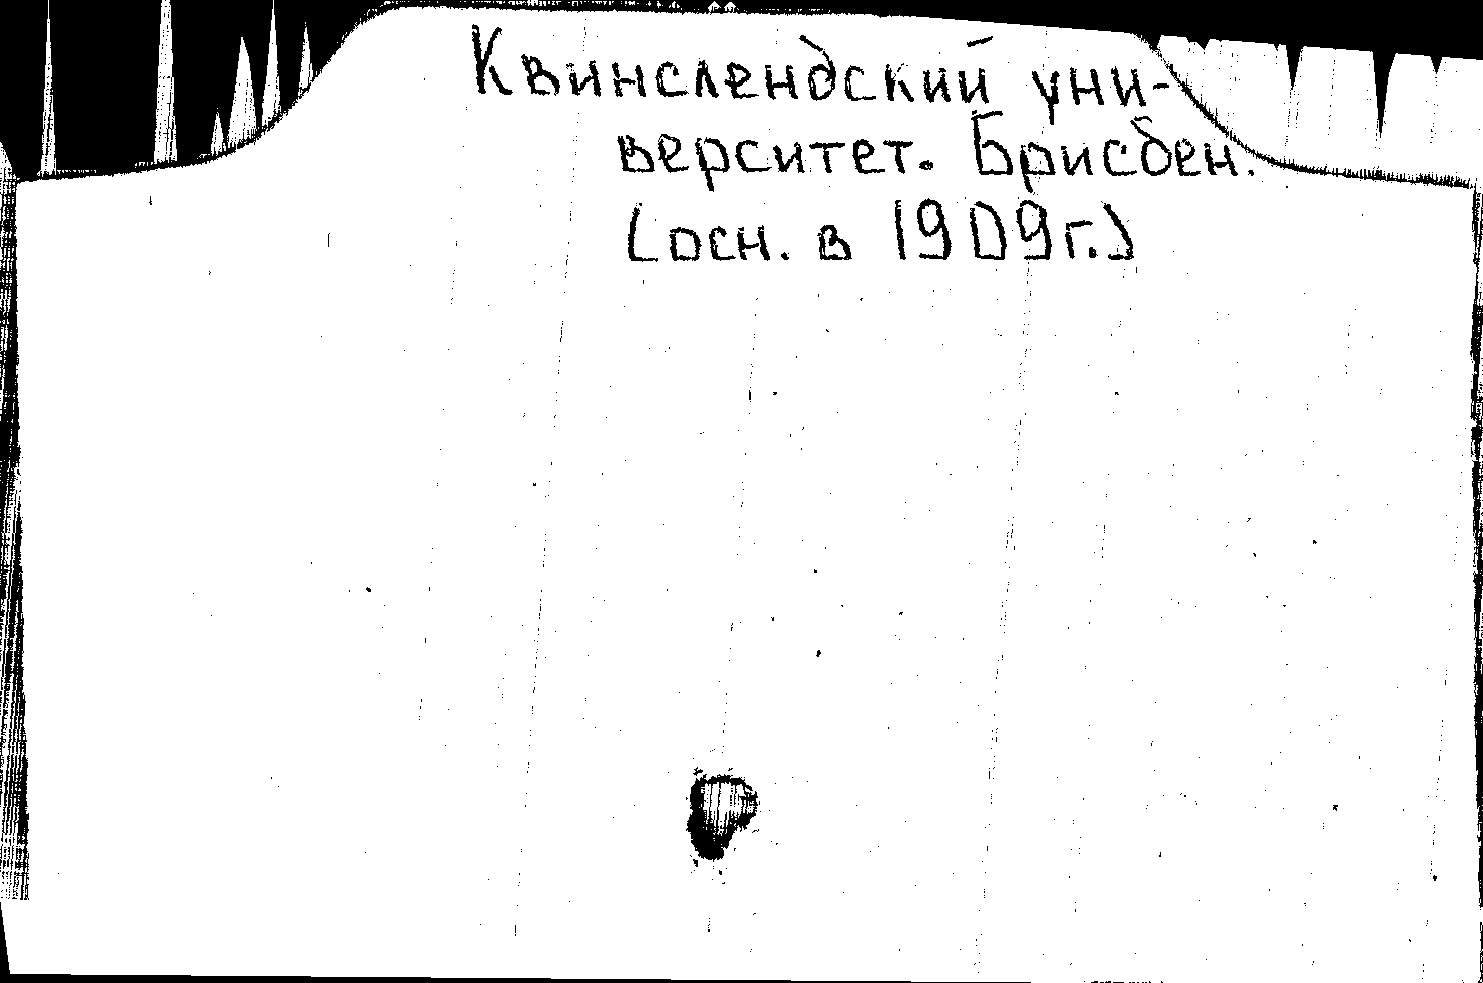 Квинслендский уни-
верситет. Брисбен.
(осн. в 1909г.)